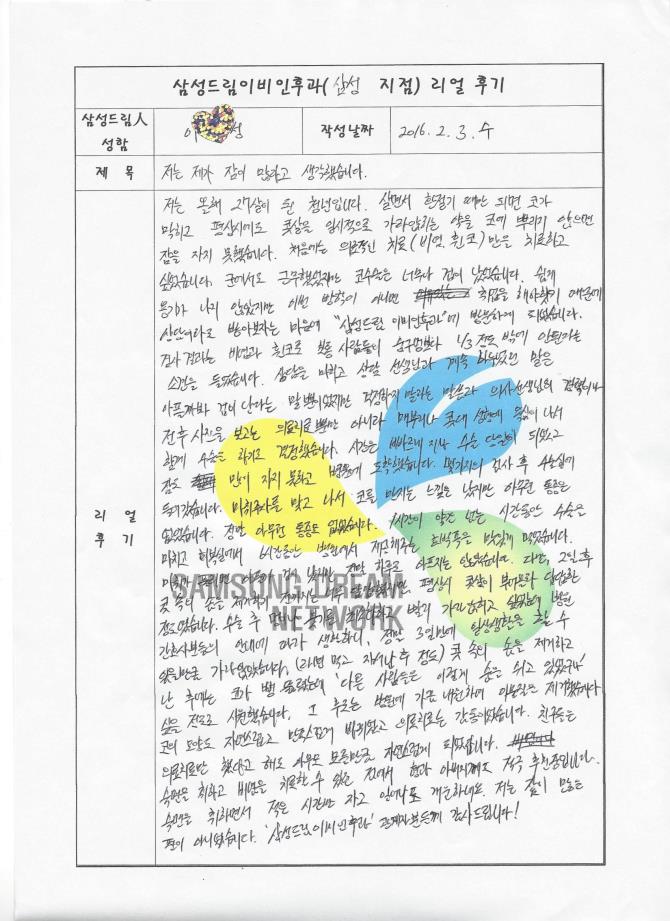 삼성드림이비인후과( 삼성 지점) 리얼 후기
삼성드림人 성함
이 성
작성날짜
2016. 2. 3. 수
제 목
저는 제가 잠이 많다고 생각했습니다.
리 얼 후 기
저는 올해 27살이 된 청년입니다. 살면서 환절기 때만 되면 코가
막히고 평상시에도 콧살을 일시적으로 가라앉히는 약을 코에 뿌리지 않으면
잠을 자지 못했습니다. 처음에는 의료적인 치료(비염, 휜코)만을 치료하고
싶었습니다. 군에서도 근무했었지만 코수술은 너무나 겁이 났었습니다. 쉽게
용기가 나지 않았지만 이번 방학이 아니면 취업을 해야했기 때문에
상담이라도 받아보자는 마음에 "삼성드림 이비인후과"에 방문하게 되었습니다.
검사결과는 비염과 휜코로 보통 사람들의 숨구멍보다 1/3 정도 밖에 안된다는
소견을 들었습니다. 상담을 마치고 상담 선생님과 계속 나눴던 말은
아플까봐 겁이 난다는 말 뿐이었지만 걱정하지 말라는 말씀과 의사선생님의 경험이나
전후 사진을 보고는 의료치료뿐만 아니라 매부리나 콧대 성형에 욕심이 나서
함께 수술을 하기로 결정했습니다. 시간은 빠르게 지나 수술 당일이 되었고
잠도 많이 자지 못하고 병원에 도착했습니다. 몇가지의 검사 후 수술실에
들어갔습니다. 마취주사를 맞고 나서 코를 만지는 느낌은 났지만 아무런 통증은
없었습니다. 정말 아무런 통증도 없었습니다. 1시간이 약간 넘는 시간동안 수술을
마치고 회복실에서 6시간동안 병원에서 제공해주는 호박죽을 맛있게 먹었습니다.
마취가 풀리면 아플까 겁이 났지만 정말 하루도 아프지는 않았습니다. 다만, 2일 후
콧 속의 솜을 제거하기 전까지는 너무 답답했지만 평상시 콧살이 부어올라 답답한
정도였습니다. 수술 후
간호사분들의 안내에 따라 생활하니, 정말 3일만에 일상생활을 할 수
있을만큼 가라앉았습니다. (라면 먹고 자버린 후 정도) 콧 속의 솜을 제거하고
난 후에는 코가 뻥 뚫렸는데 '다른 사람들은 이렇게 숨을 쉬고 있었구나'
싶을 정도로 시원했습니다. 그 후로는 병원에 가끔 내원하며 이물질을 제거했습니다.
코의 모양도 자연스럽고 만족스럽게 바뀌었고 의료치료는 감동이었습니다. 친구들은
의료치료만 했다고 해도 아무도 모를만큼 자연스럽게 되었습니다.
숙면을 취하고 비염을 치료할 수 있는 점에서 형과 아버지께도 적극 추천중입니다.
숙면을 취하면서 적은 시간만 자고 일어나도 개운하네요. 저는 잠이 많은
편이 아니었습니다. '삼성드림이비인후과' 관계자분들께 감사드립니다!
SAMSUNG DREAM
NETWORK